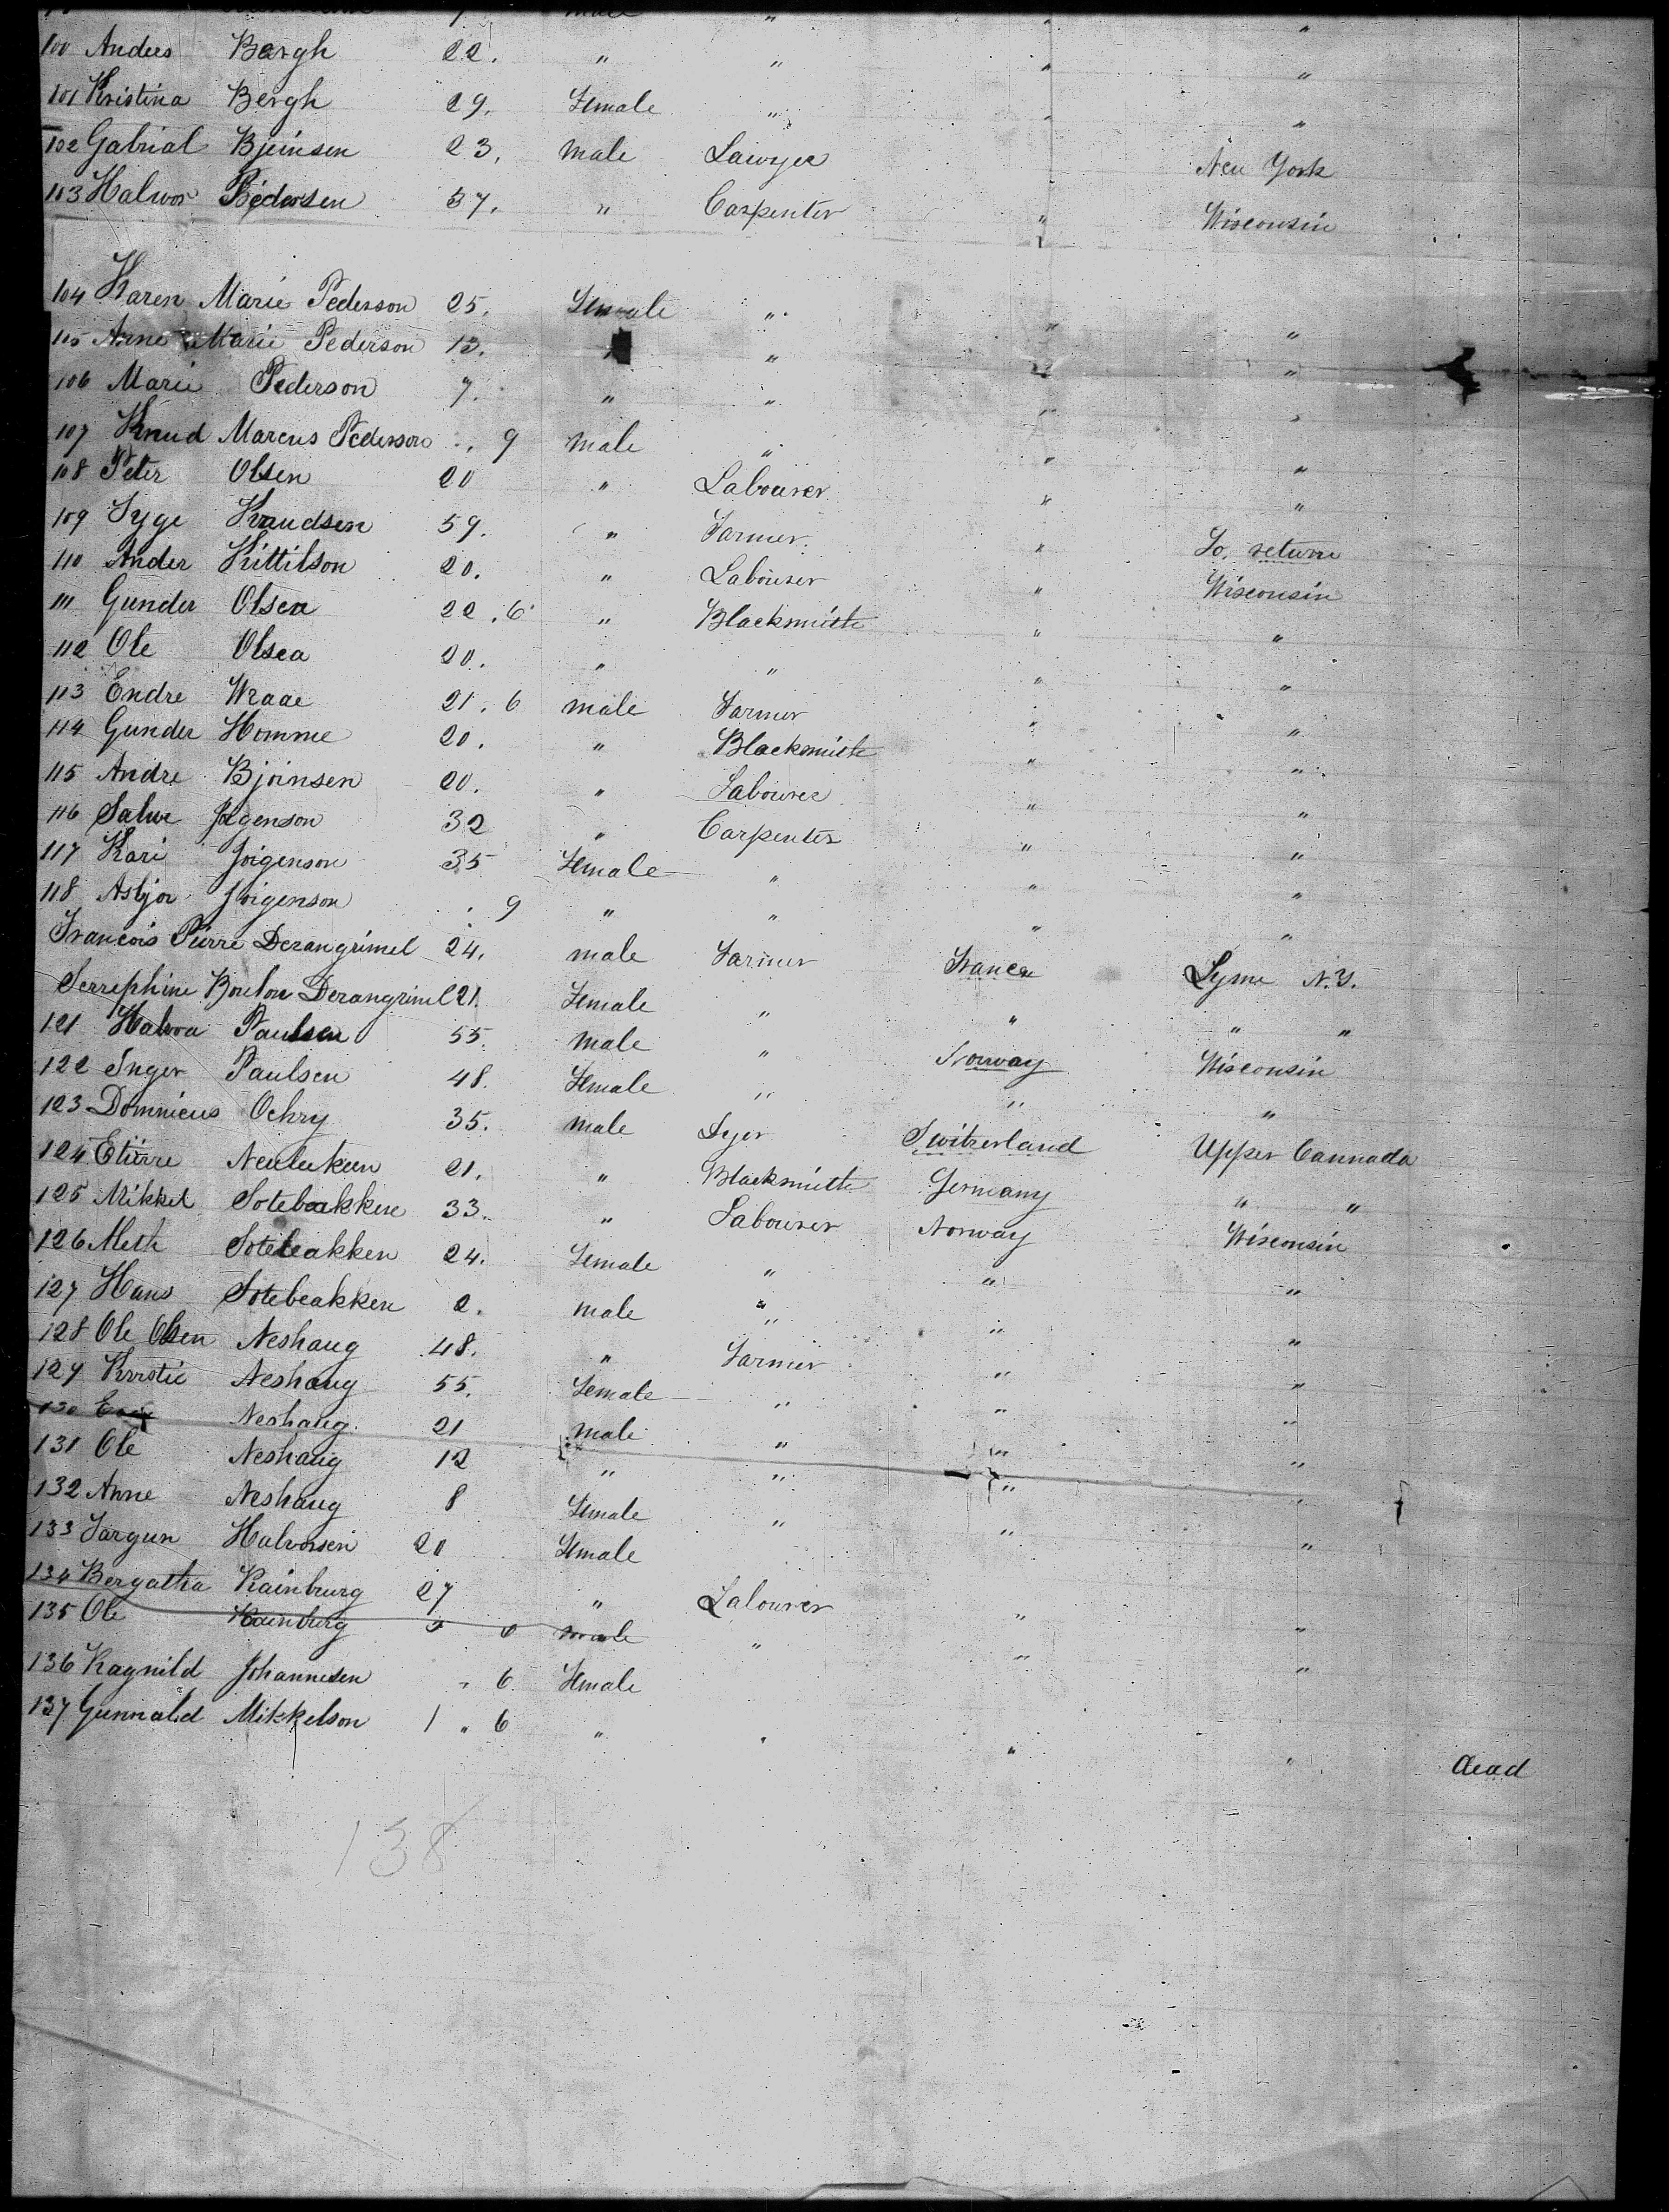 male " " "
100 Andees Bergh 22. " " " "
101 Kristina Bergh 29. Female " " "
102 Gabrial Bjeinsen 23. male Lawyer New York
103 Halwor Pedersen 37. " Carpenter " Wisconsin
104 Karen Marie Pederson 25. Female " " "
105 Anne Marie Pederson 13. " " " "
106 Marie Pederson 7. " " " "
107 Knud Marcus Pederson . 9 male " " "
108 Peter Olsen 20 " Labourer " "
109 Syge Knudsen 59. " Farmer " To return
110 Ander Kittilson 20. " Labourer " Wisconsin
111 Gunder Olsen 22 . 6 " Blacksmith " "
112 Ole Olsea 20. " " " "
113 Endre Wraae 21 . 6 male Farmer " "
114 Gunder Homme 20. " Blacksmith " "
115 Andre Bjoinsen 20. " Labourer " "
116 Salwe Jögenson 32 " Carpenter " "
117 Kari Joigenson 35 Female " " "
118 Asbjor Joigenson . 9 " " " "
Francois Pierre Derangrimel 24. male Farmer France Lyme N.Y.
Serrephine Boulon Derangrimel 21. Female " " " "
121 Halvoa Paulsen 55. male " Norway Wisconsin
122 Inger Paulsen 48. Female " " "
123 Domnicus Ochry 35. male Dyer Switzerland Upper Cannada
124 Etiirre Neuleteen 21. " Blacksmith Germany " "
125 Mikkel Sotebakken 33. " Labourer Norway Wisconsin
126 Meth Sotebakken 24. Female " " "
127 Hans Sotebeakken 2. male " " "
128 Ole Olsen Neshaug 48. " Farmer " "
129 Kirstie Neshaug 55. Female " " "
130 Neshaug 21 male " " "
131 Ole Neshaug 12 " " " "
132 Anne Neshaug 8 Female " " "
133 Jargun Halvorsen 20 Female " "
134 Bergatha Rainburg 27 " Labourer " "
135 Ole Rainburg male " " "
136 Ragnild Johannesen " 6 Female
137 Gunnalid Mikkelson 1 " 6 " " " " dead
138